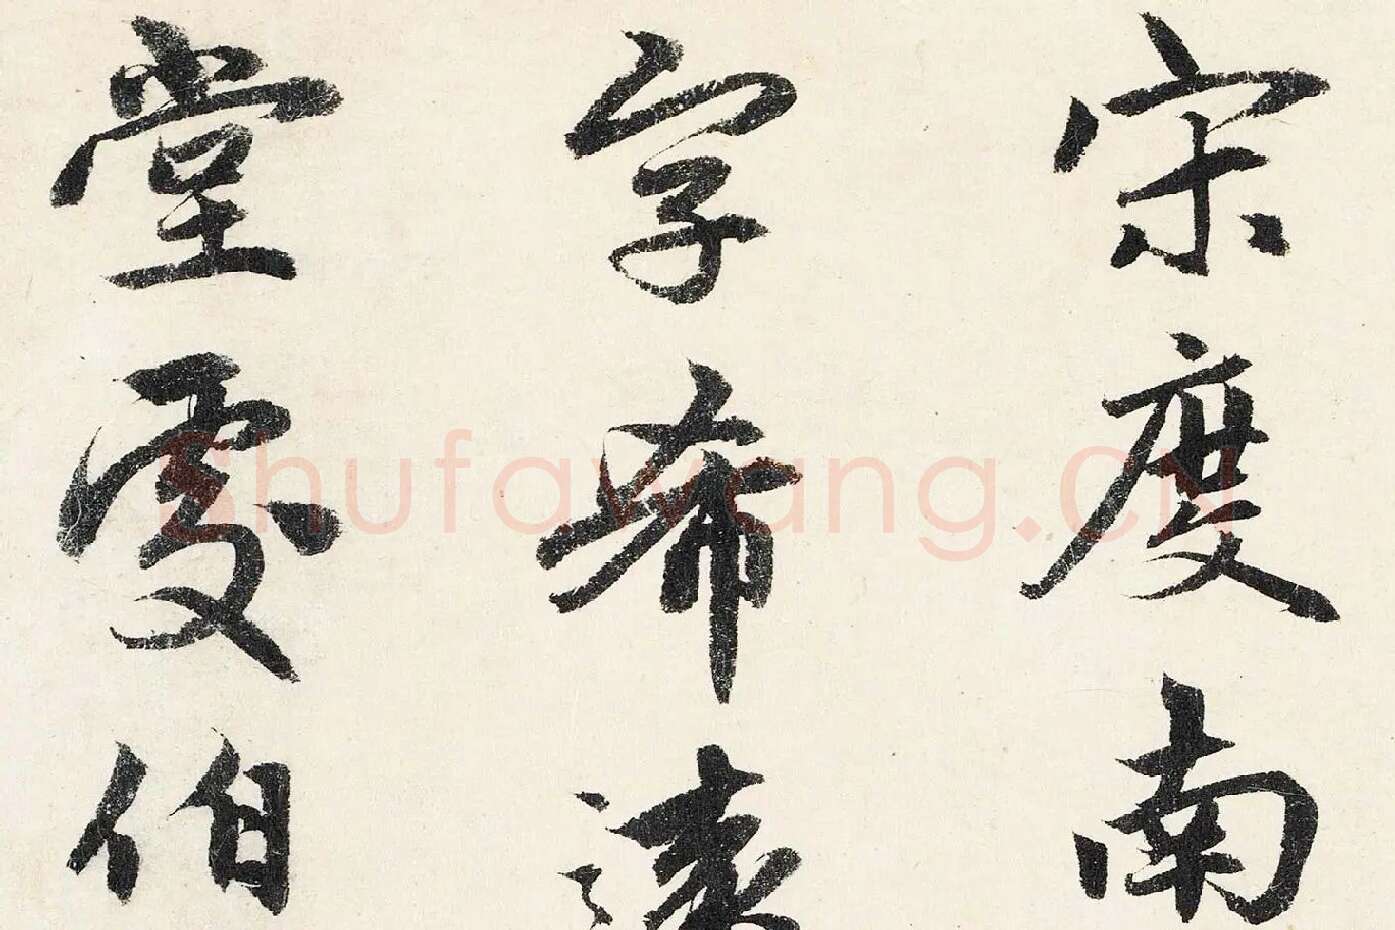 宋度南
字希遠
堂處伯
shufawang.cn